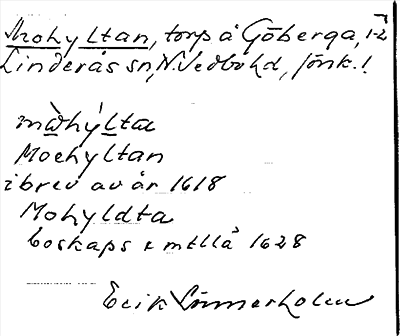 Mohyltan, torp å Göberga, 1-2
Linderås sn, N. Vedbo hd, Jönk. l.
måhýlta
Moehyltan
i brev av år 1618
Mohyldta
boskaps & mtllä 1628
Erik Linnerholm